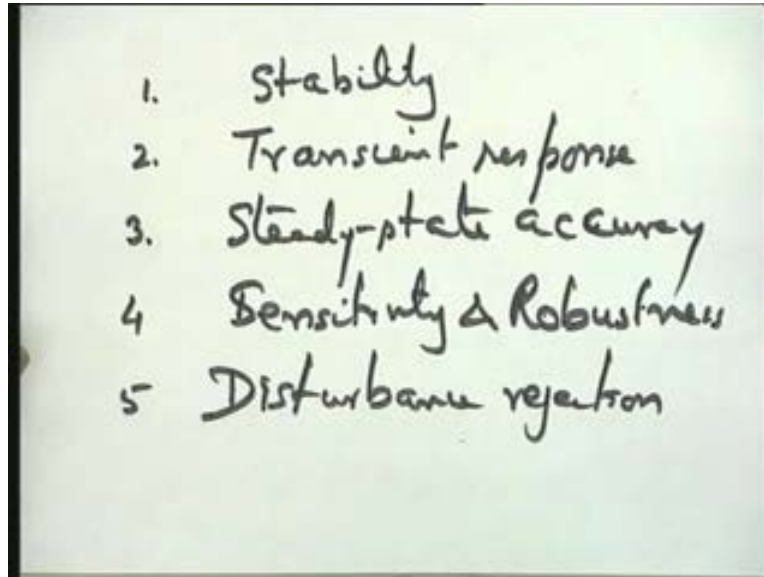 1. Stability
2. Transient response
3. Steady-state accuracy
4 Sensitivity & Robustness
5 Disturbance rejection